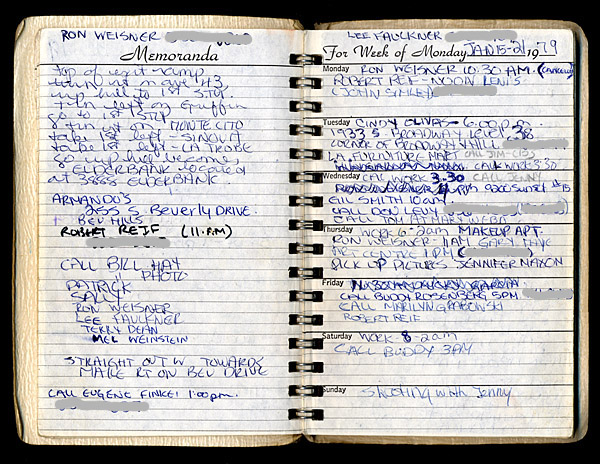 RON WEISNER
Memoranda
top of right ramp
turn left on ave 43
up hill to 1st STOP.
turn left on Griffin
go to 1st STOP
turn rt on MONTE CITO
take 1st left - SINOVA
take 1st left - LA THROBE
go up hill becomes
ELDERBANK located
at 3888 ELDERBANK
ARMANDO'S
255 S Beverly DRIVE.
BEV HILLS
ROBERT REIF (11:P.M)
CALL BILL HAY
PHOTO
PATRICK
SALLY
RON WEISNER
LEE FAULKNER
TERRY DEAN
MEL WEINSTEIN
STRAIGHT OUT W TOWARDS
MAKE RT ON BEV DRIVE
CALL EUGENE FINKEL 1:00 p.m.
LEE FAULKNER
For Week of Monday JAN 15-21 1979
Monday RON WEISNER 10.30 A.M. (Cancelled)
ROBERT REIF - NOON LENI'S
(JOHN SIMLEY)
Tuesday CINDY 6:00 p.m.
1933 S BROADWAY LEVEL 38
CORNER OF BROADWAY & HILL
L.A. FURNITURE MART CALL JIM
CALL WORK 3:30
Wednesday CALL WORK 3.30 CALL JENNY
9200 SUNSET
GIL SMITH 10am
CALL DON LEVY
CALL TIM AT MARY WEBB
Thursday WORK 6-2am MAKEUP APT.
RON WEISNER - 11AM GARY
ART CENTRE 1PM
PICK UP PICTURES JENNIFER MAXON
Friday
CALL BUDDY ROSENBERG 5PM
CALL MARILYN GRABOWSKI
ROBERT REIF
Saturday WORK 8-2am
CALL BUDDY 3AM
Sunday Shooting with Jenny